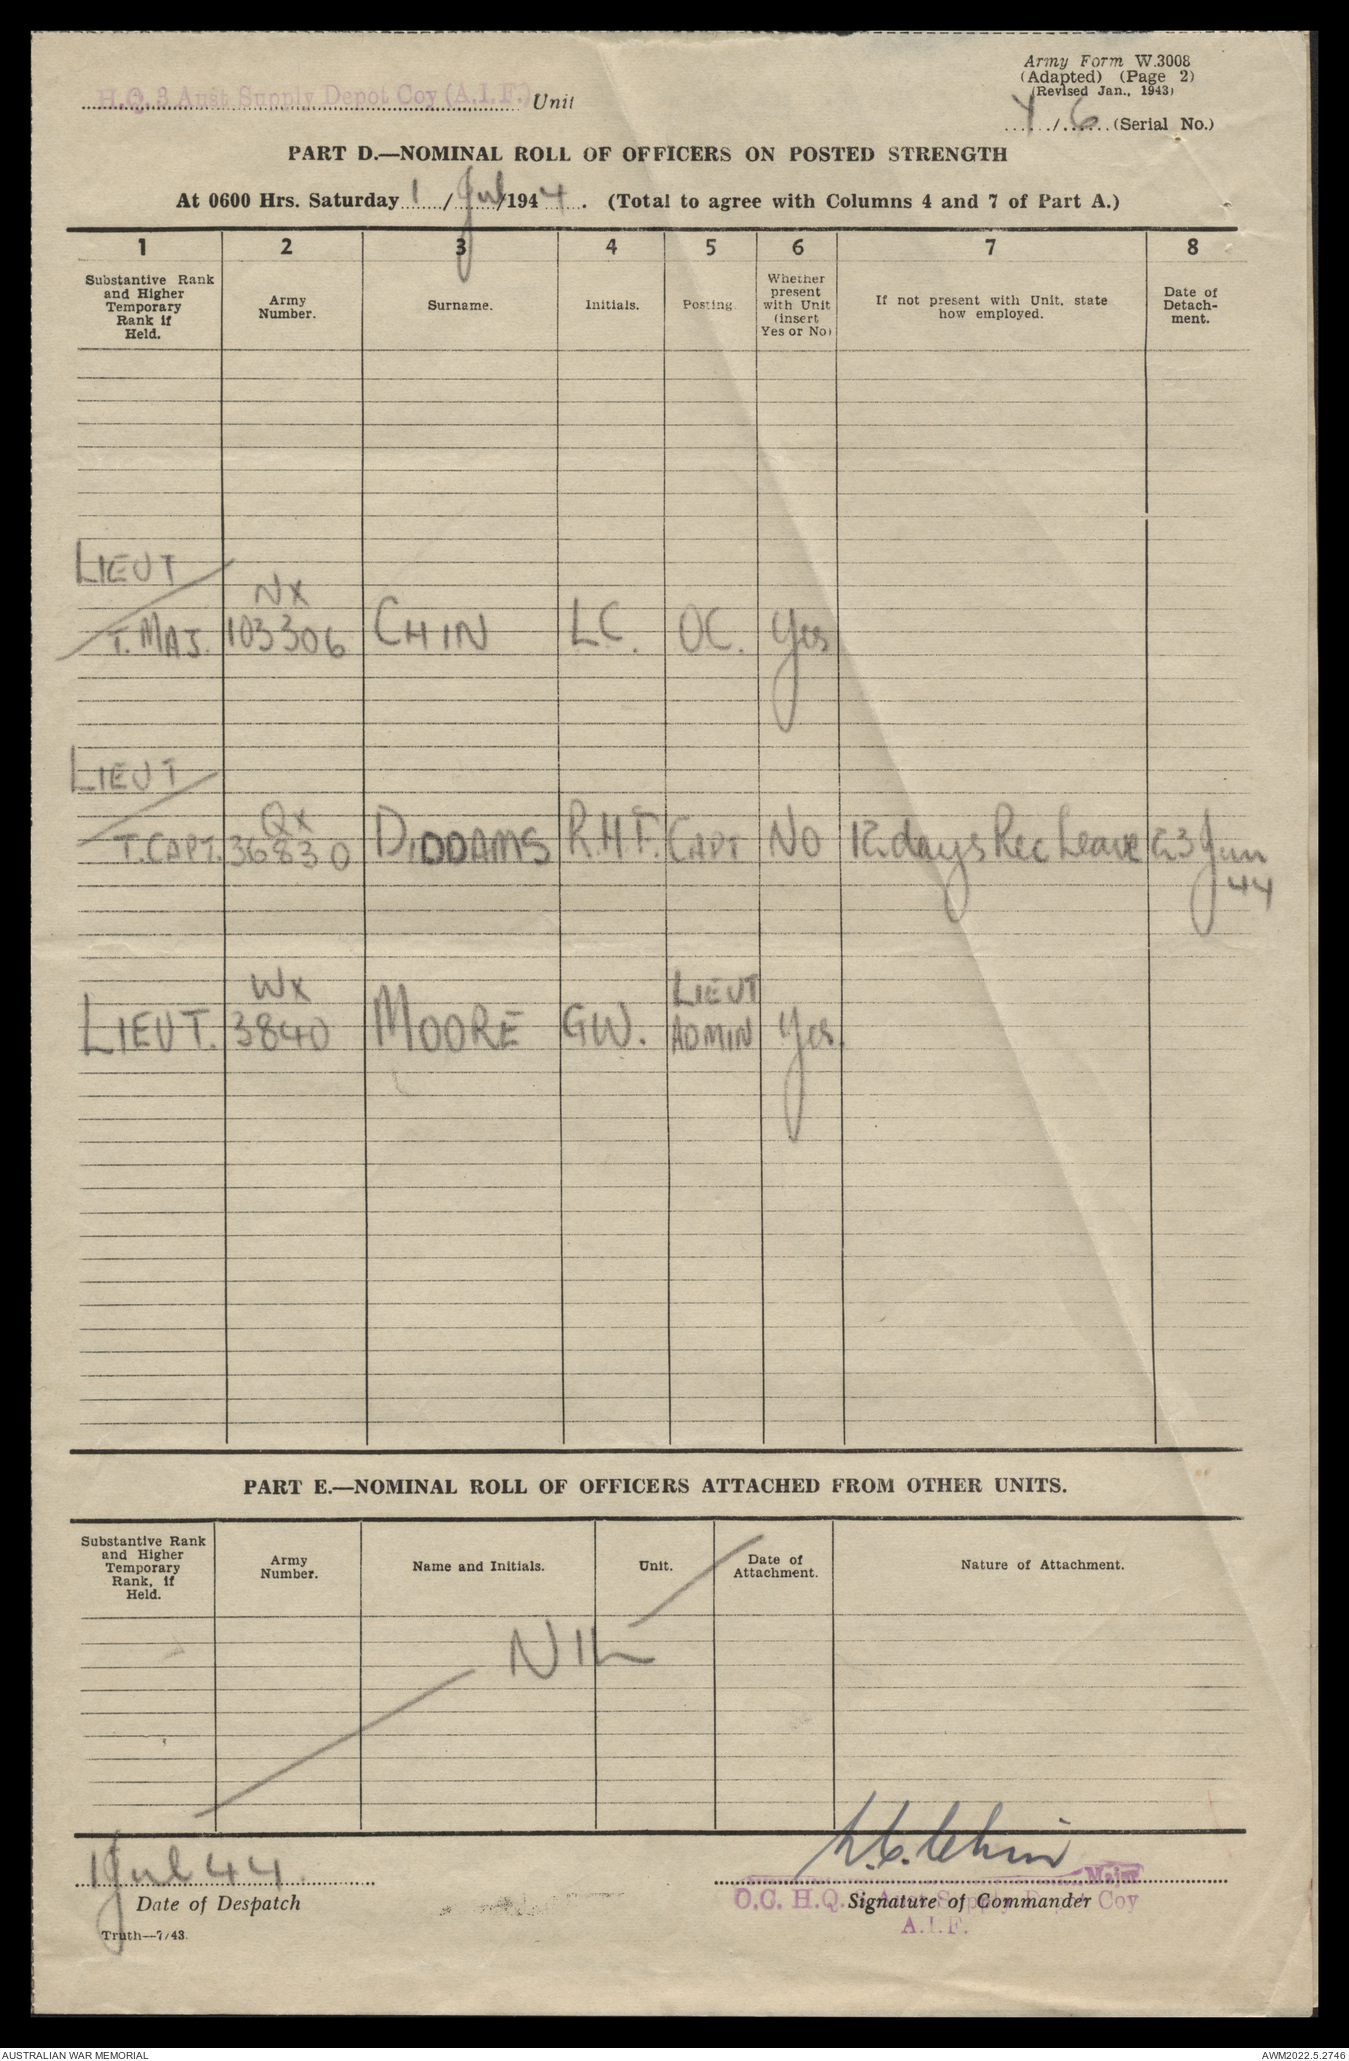 Army Form W.3008
(Adapted) (Page 2)
(Revised Jan., 1943)
H.Q. 3 Aust Supply Depot Coy (A.I.F.) Unit
Y/6 (Serial No.)
PART D.—NOMINAL ROLL OF OFFICERS ON POSTED STRENGTH
At 0600 Hrs. Saturday 1/Jul/1944. (Total to agree with Columns 4 and 7 of Part A.)
1 2 3 4 5 6 7 8
Substantive Rank and Higher Temporary Rank if Held. Army Number. Surname. Initials. Posting. Whether present with Unit (insert Yes or No) If not present with Unit, state how employed. Date of Detach-ment.
LIEUT
NX
T. MAJ. 103306 CHIN L.C. OC. Yes
LIEUT
QX
T. CAPT. 36830 DIDDAMS R.H.F. CAPT NO 12 days Rec Leave 23 Jun
44
WX LIEUT
LIEUT. 3840 MOORE G.W. ADMIN Yes.
PART E.—NOMINAL ROLL OF OFFICERS ATTACHED FROM OTHER UNITS.
Substantive Rank and Higher Temporary Rank, if Held. Army Number. Name and Initials. Unit. Date of Attachment. Nature of Attachment.
NIL
1 Jul 44. L.C. Chin
Major
Date of Despatch Signature of Commander
O.C. H.Q. 3 Aust Supply Depot Coy
A.I.F.
Truth—7/43.
AUSTRALIAN WAR MEMORIAL AWM2022.5.2746